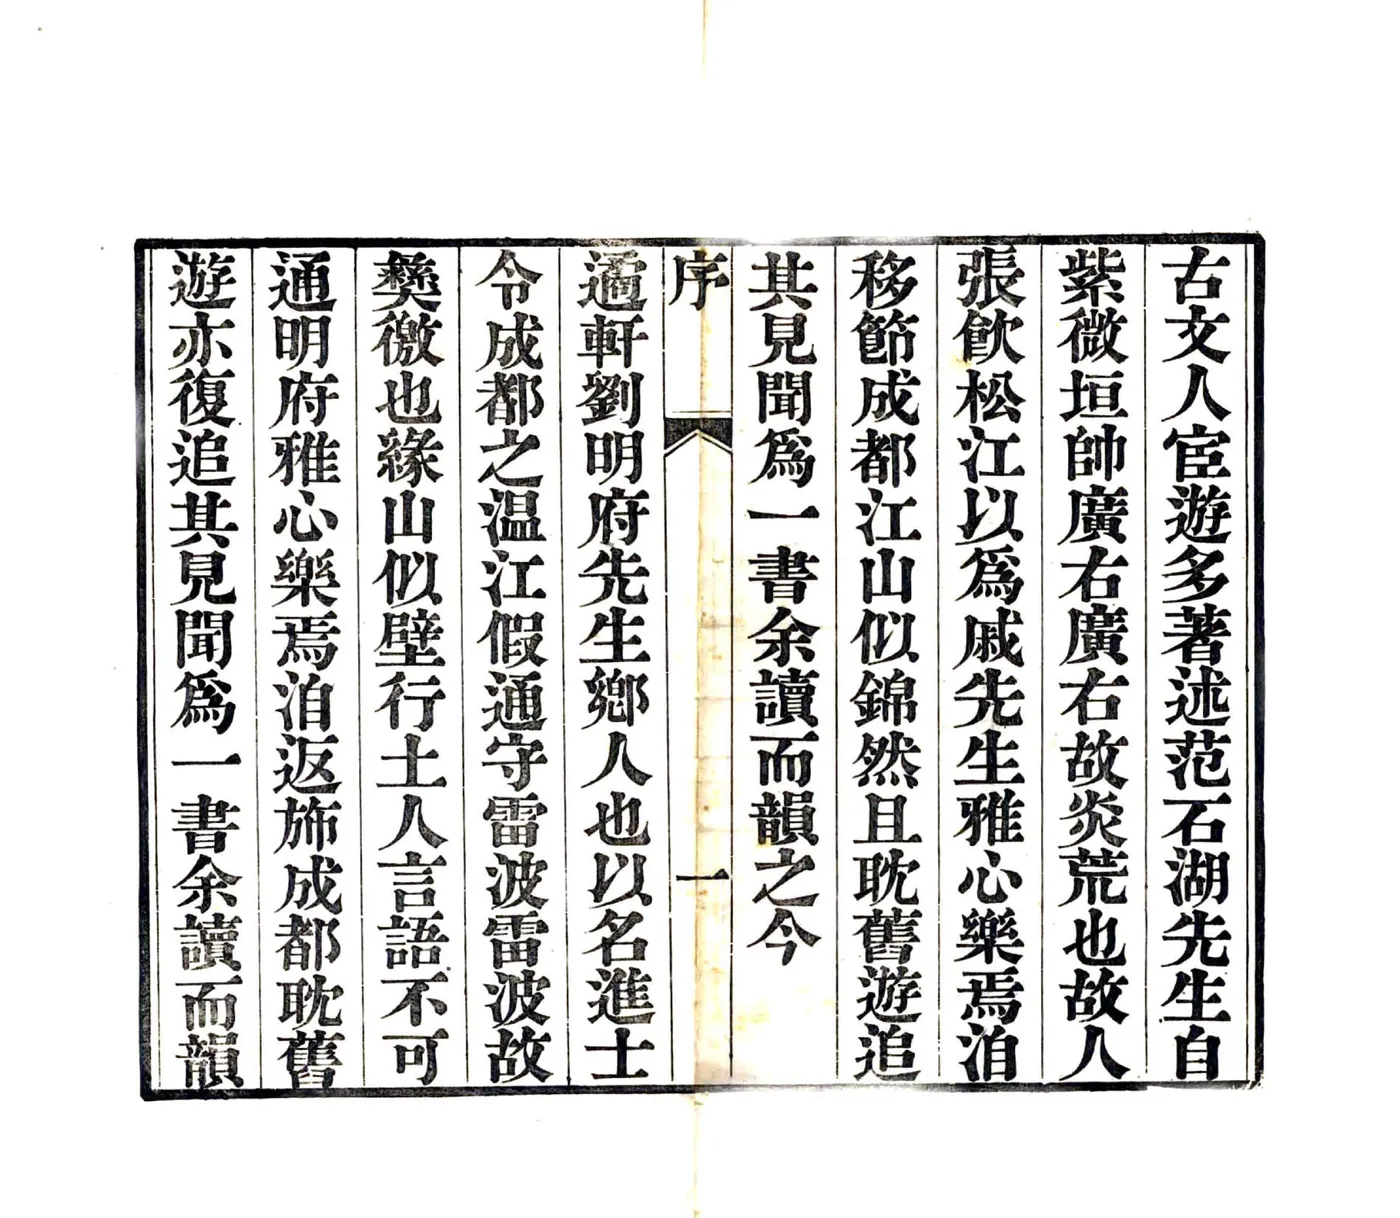 古文人宦遊多著述范石湖先生自
紫微垣帥廣右廣右故炎荒也故人
張飲松江以爲戚先生雅心樂焉洎
移節成都江山似錦然且耽舊遊追
其見聞爲一書余讀而韻之今
序
一
遹軒劉明府先生鄉人也以名進士
令成都之温江假通守雷波雷波故
彝徼也緣山似壁行土人言語不可
通明府雅心樂焉洎返斾成都耽舊
遊亦復追其見聞爲一書余讀而韻